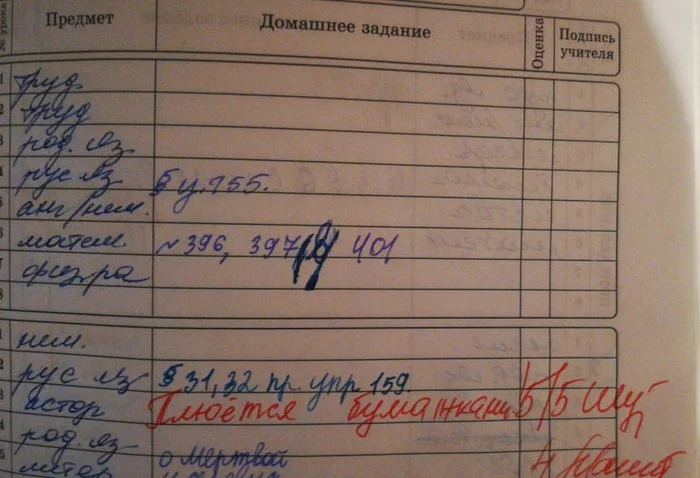 № урока Предмет Домашнее задание Оценка Подпись учителя
1 труд
2 труд
3 род. яз
4 рус яз § у. 155.
5 анг/нем.
6 матем. № 396, 397, 401
7 физ-ра
8
1 нем.
2 рус яз § 31, 32 пр. упр 159.
3 истор Плюётся бумажками 5/5
4 род. яз
5 о мертвой 4